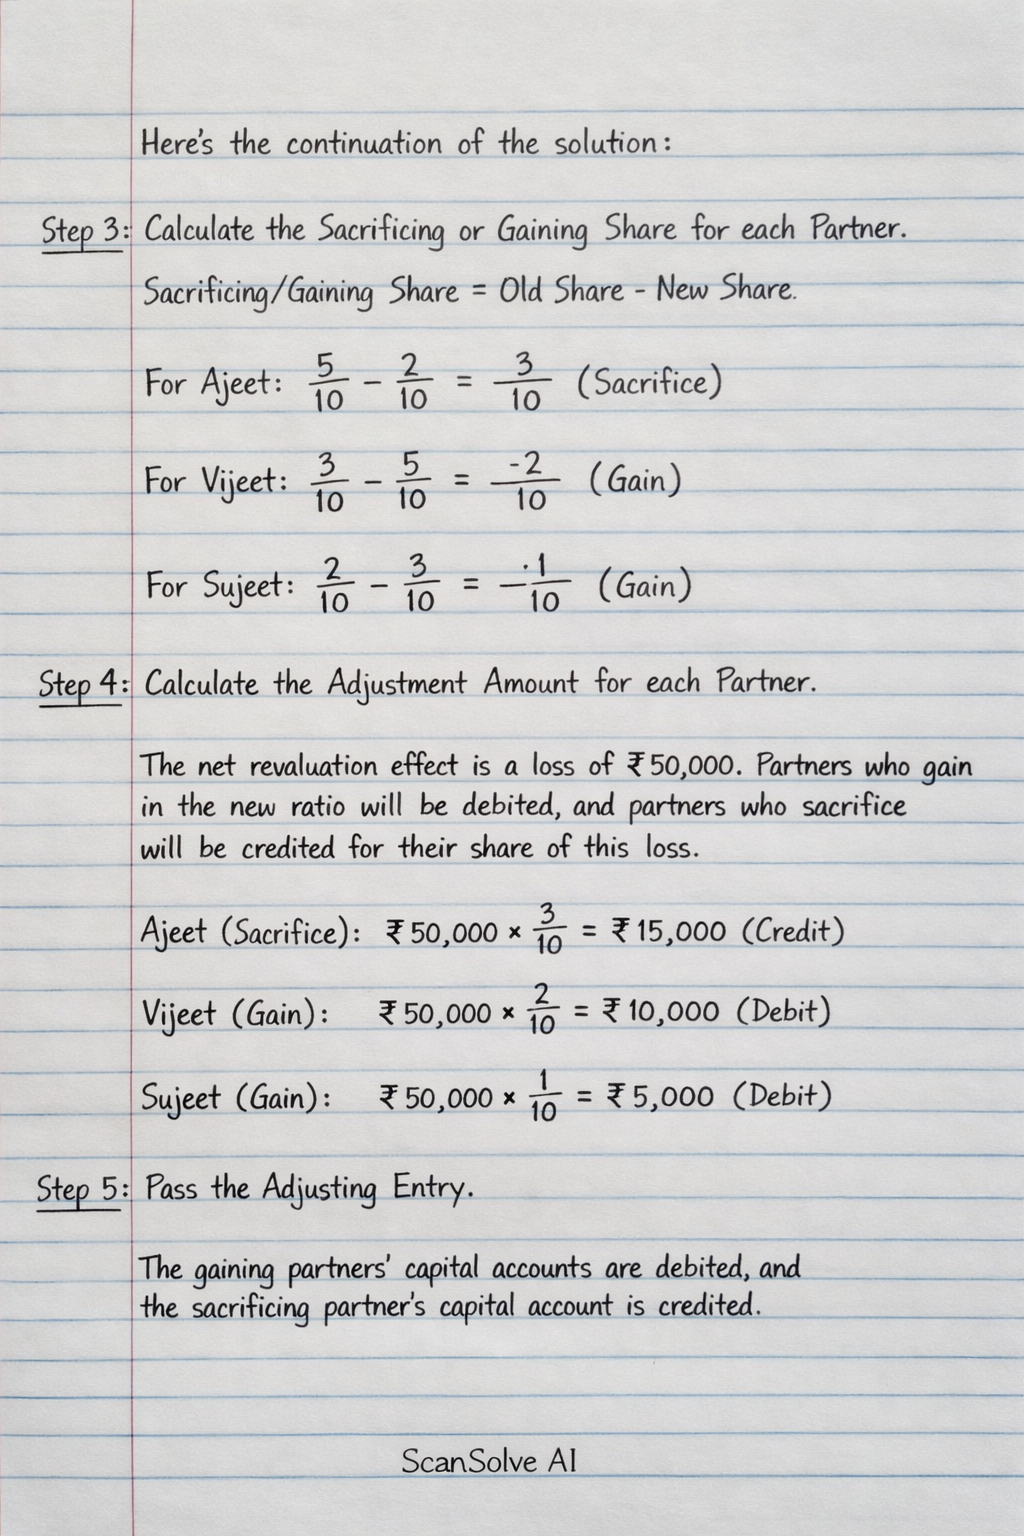 Here's the continuation of the solution:
Step 3: Calculate the Sacrificing or Gaining Share for each Partner.
Sacrificing/Gaining Share = Old Share - New Share.
For Ajeet: 5/10 - 2/10 = 3/10 (Sacrifice)
For Vijeet: 3/10 - 5/10 = -2/10 (Gain)
For Sujeet: 2/10 - 3/10 = -1/10 (Gain)
Step 4: Calculate the Adjustment Amount for each Partner.
The net revaluation effect is a loss of ₹50,000. Partners who gain
in the new ratio will be debited, and partners who sacrifice
will be credited for their share of this loss.
Ajeet (Sacrifice): ₹50,000 × 3/10 = ₹15,000 (Credit)
Vijeet (Gain): ₹50,000 × 2/10 = ₹10,000 (Debit)
Sujeet (Gain): ₹50,000 × 1/10 = ₹5,000 (Debit)
Step 5: Pass the Adjusting Entry.
The gaining partners' capital accounts are debited, and
the sacrificing partner's capital account is credited.
ScanSolve AI